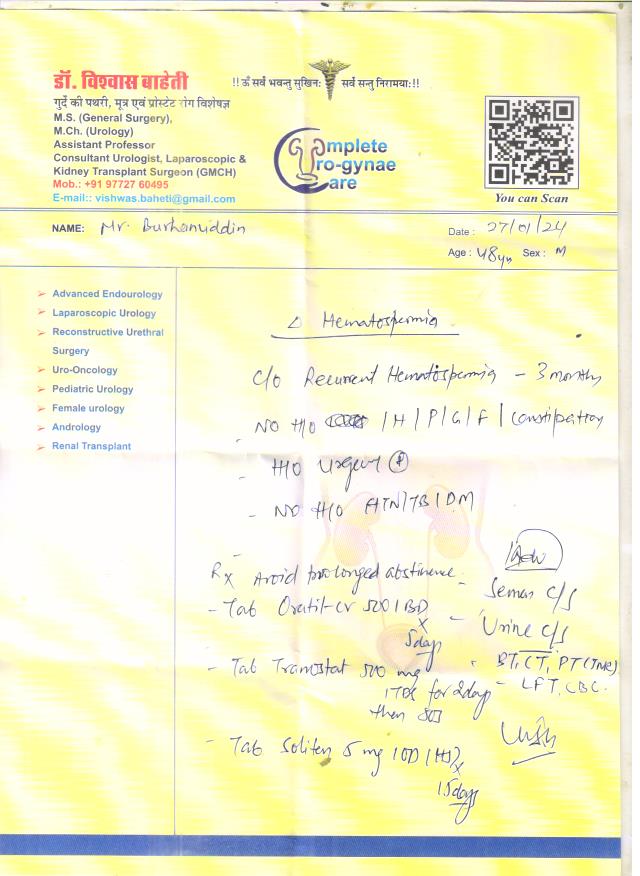 !! ॐ सर्वे भवन्तु सुखिन: सर्वे सन्तु निरामया:!!
डॉ. विश्वास बाहेती
गुर्दे की पथरी, मूत्र एवं प्रोस्टेट रोग विशेषज्ञ
M.S. (General Surgery),
M.Ch. (Urology)
Assistant Professor
Consultant Urologist, Laparoscopic &
Kidney Transplant Surgeon (GMCH)
Mob.: +91 97727 60495
E-mail:: vishwas.baheti@gmail.com
Complete
Uro-gynae
Care
You can Scan
NAME: Mr. Burhanuddin
Date : 27/01/24
Age : 48yr Sex : M
Advanced Endourology
Laparoscopic Urology
Reconstructive Urethral
Surgery
Uro-Oncology
Pediatric Urology
Female urology
Andrology
Renal Transplant
Δ Hematospermia
C/o Recurrent Hematospermia - 3 months
- NO H/O /H/P/G/F/ constipation
- H/O Urgency
- NO H/O HTN/TB/DM
Rx Avoid prolonged abstinence
- Tab CV 500 1BD
x
5days
- Tab 500 mg
1TDS for 2days
then SOS
- Tab Soliten 5 mg 1OD (HS)
x
15days
Adv
- Semen C/S
- Urine C/S
- BT, CT, PT (INR)
- LFT, CBC.